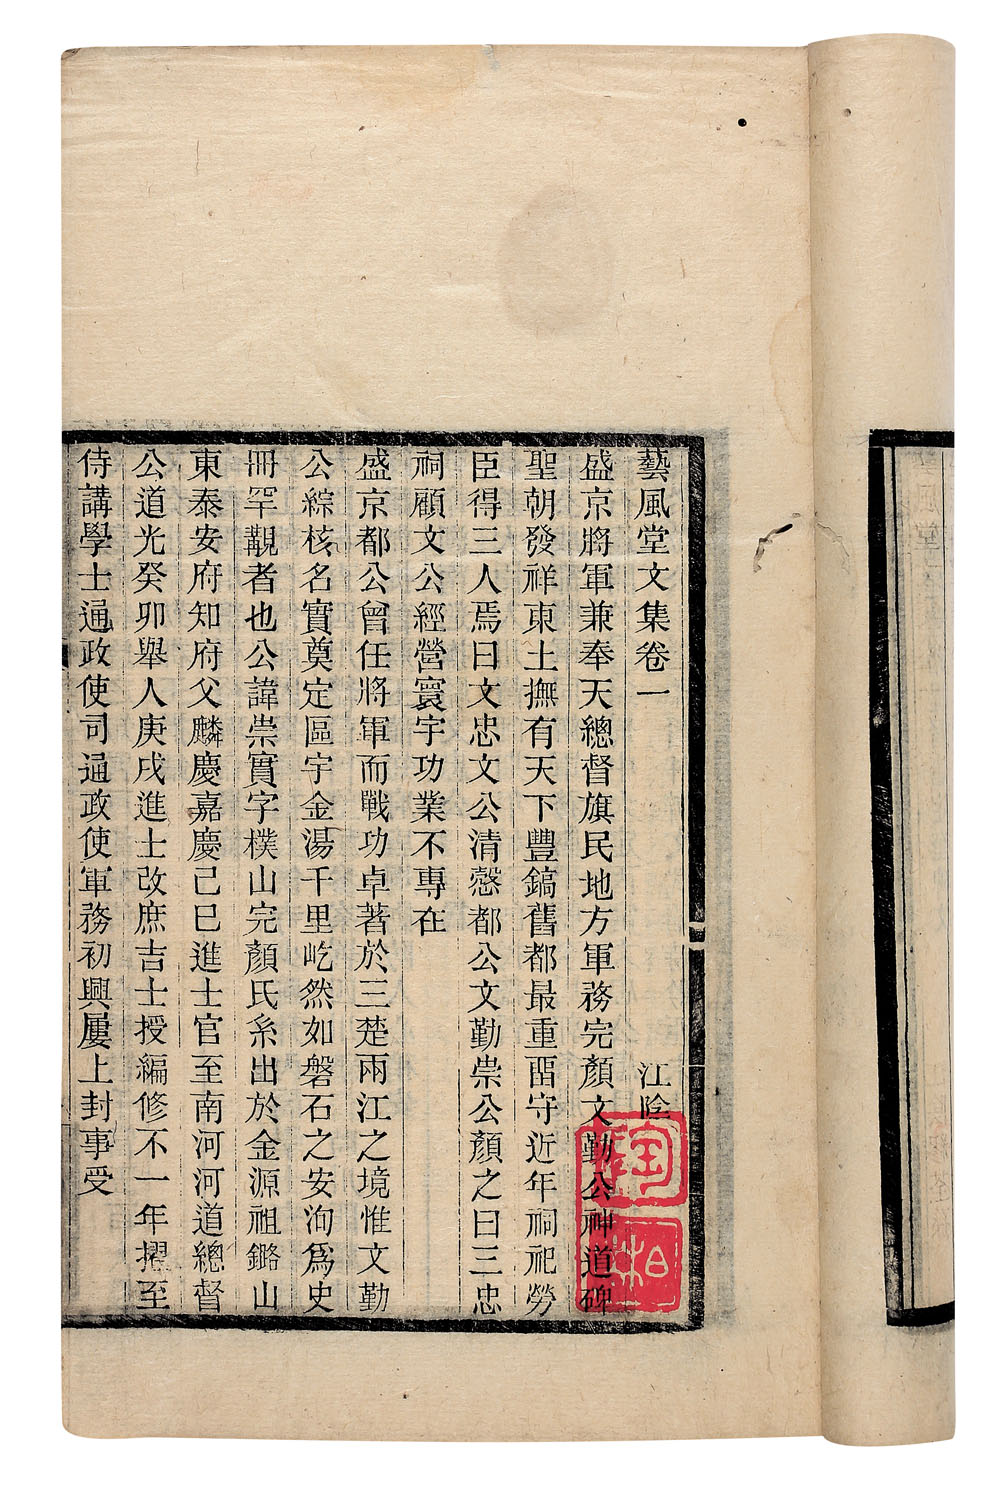 藝風堂文集卷一　江陰
盛京將軍兼奉天總督旗民地方軍務完顏文勤公神道碑
聖朝發祥東土撫有天下豐鎬舊都最重畱守近年祠祀勞
臣得三人焉曰文忠文公清慤都公文勤崇公顏之曰三忠
祠顧文公經營寰宇功業不專在
盛京都公曾任將軍而戰功卓著於三楚兩江之境惟文勤
公綜核名實奠定區宇金湯千里屹然如磐石之安洵爲史
冊罕覯者也公諱崇實字樸山完顏氏系出於金源祖鏴山
東泰安府知府父麟慶嘉慶己巳進士官至南河河道總督
公道光癸卯舉人庚戌進士改庶吉士授編修不一年擢至
侍講學士通政使司通政使軍務初興屢上封事受